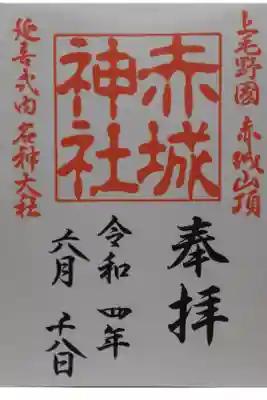 上毛野國 赤城山頂
赤城
神社
延喜式内 名神大社
奉拝
令和 四年
六月 十八日